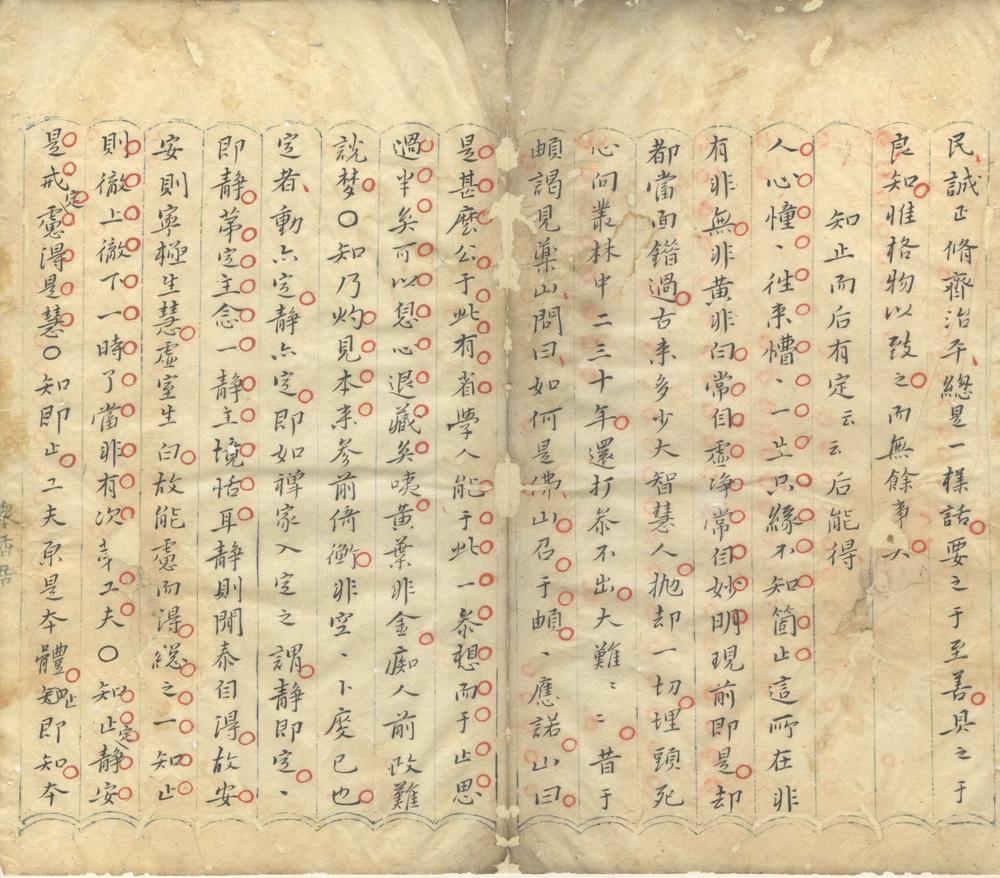 民誠正脩齊治平總是一樣話要之于至善具之于
良知惟格物以致之而無餘事
知止而后有定云云后能得
人心憧丶徃来慒丶一生只緣不知箇止這所在非
有非無非黄非白常自虛淨常自妙明現前即是却
都當面錯過古来多少大智慧人抛却一切埋頭死
心向叢林中二三十年還打叅不出大難〻〻昔于
頔謁見藥山問曰如何是佛山召于頔丶應諾山曰
是甚麽公于此有省學人能于此一叅想而于止思
過半矣可以息心退藏矣咦黄葉非金痴人前政難
說梦〇知乃灼見本来参前倚衡非空丶卜度已也
定者動亦定静亦定即如禪家入定之謂静即定丶
即静第定主念一静主境恬耳静則閒泰自得故安
安則寧極生慧虛室生白故能慮而得総之一知止
則徹上徹下一時了當非有次苐工夫〇知止定静安
是戒定慮得是慧〇知即止工夫原是本體知止即知本